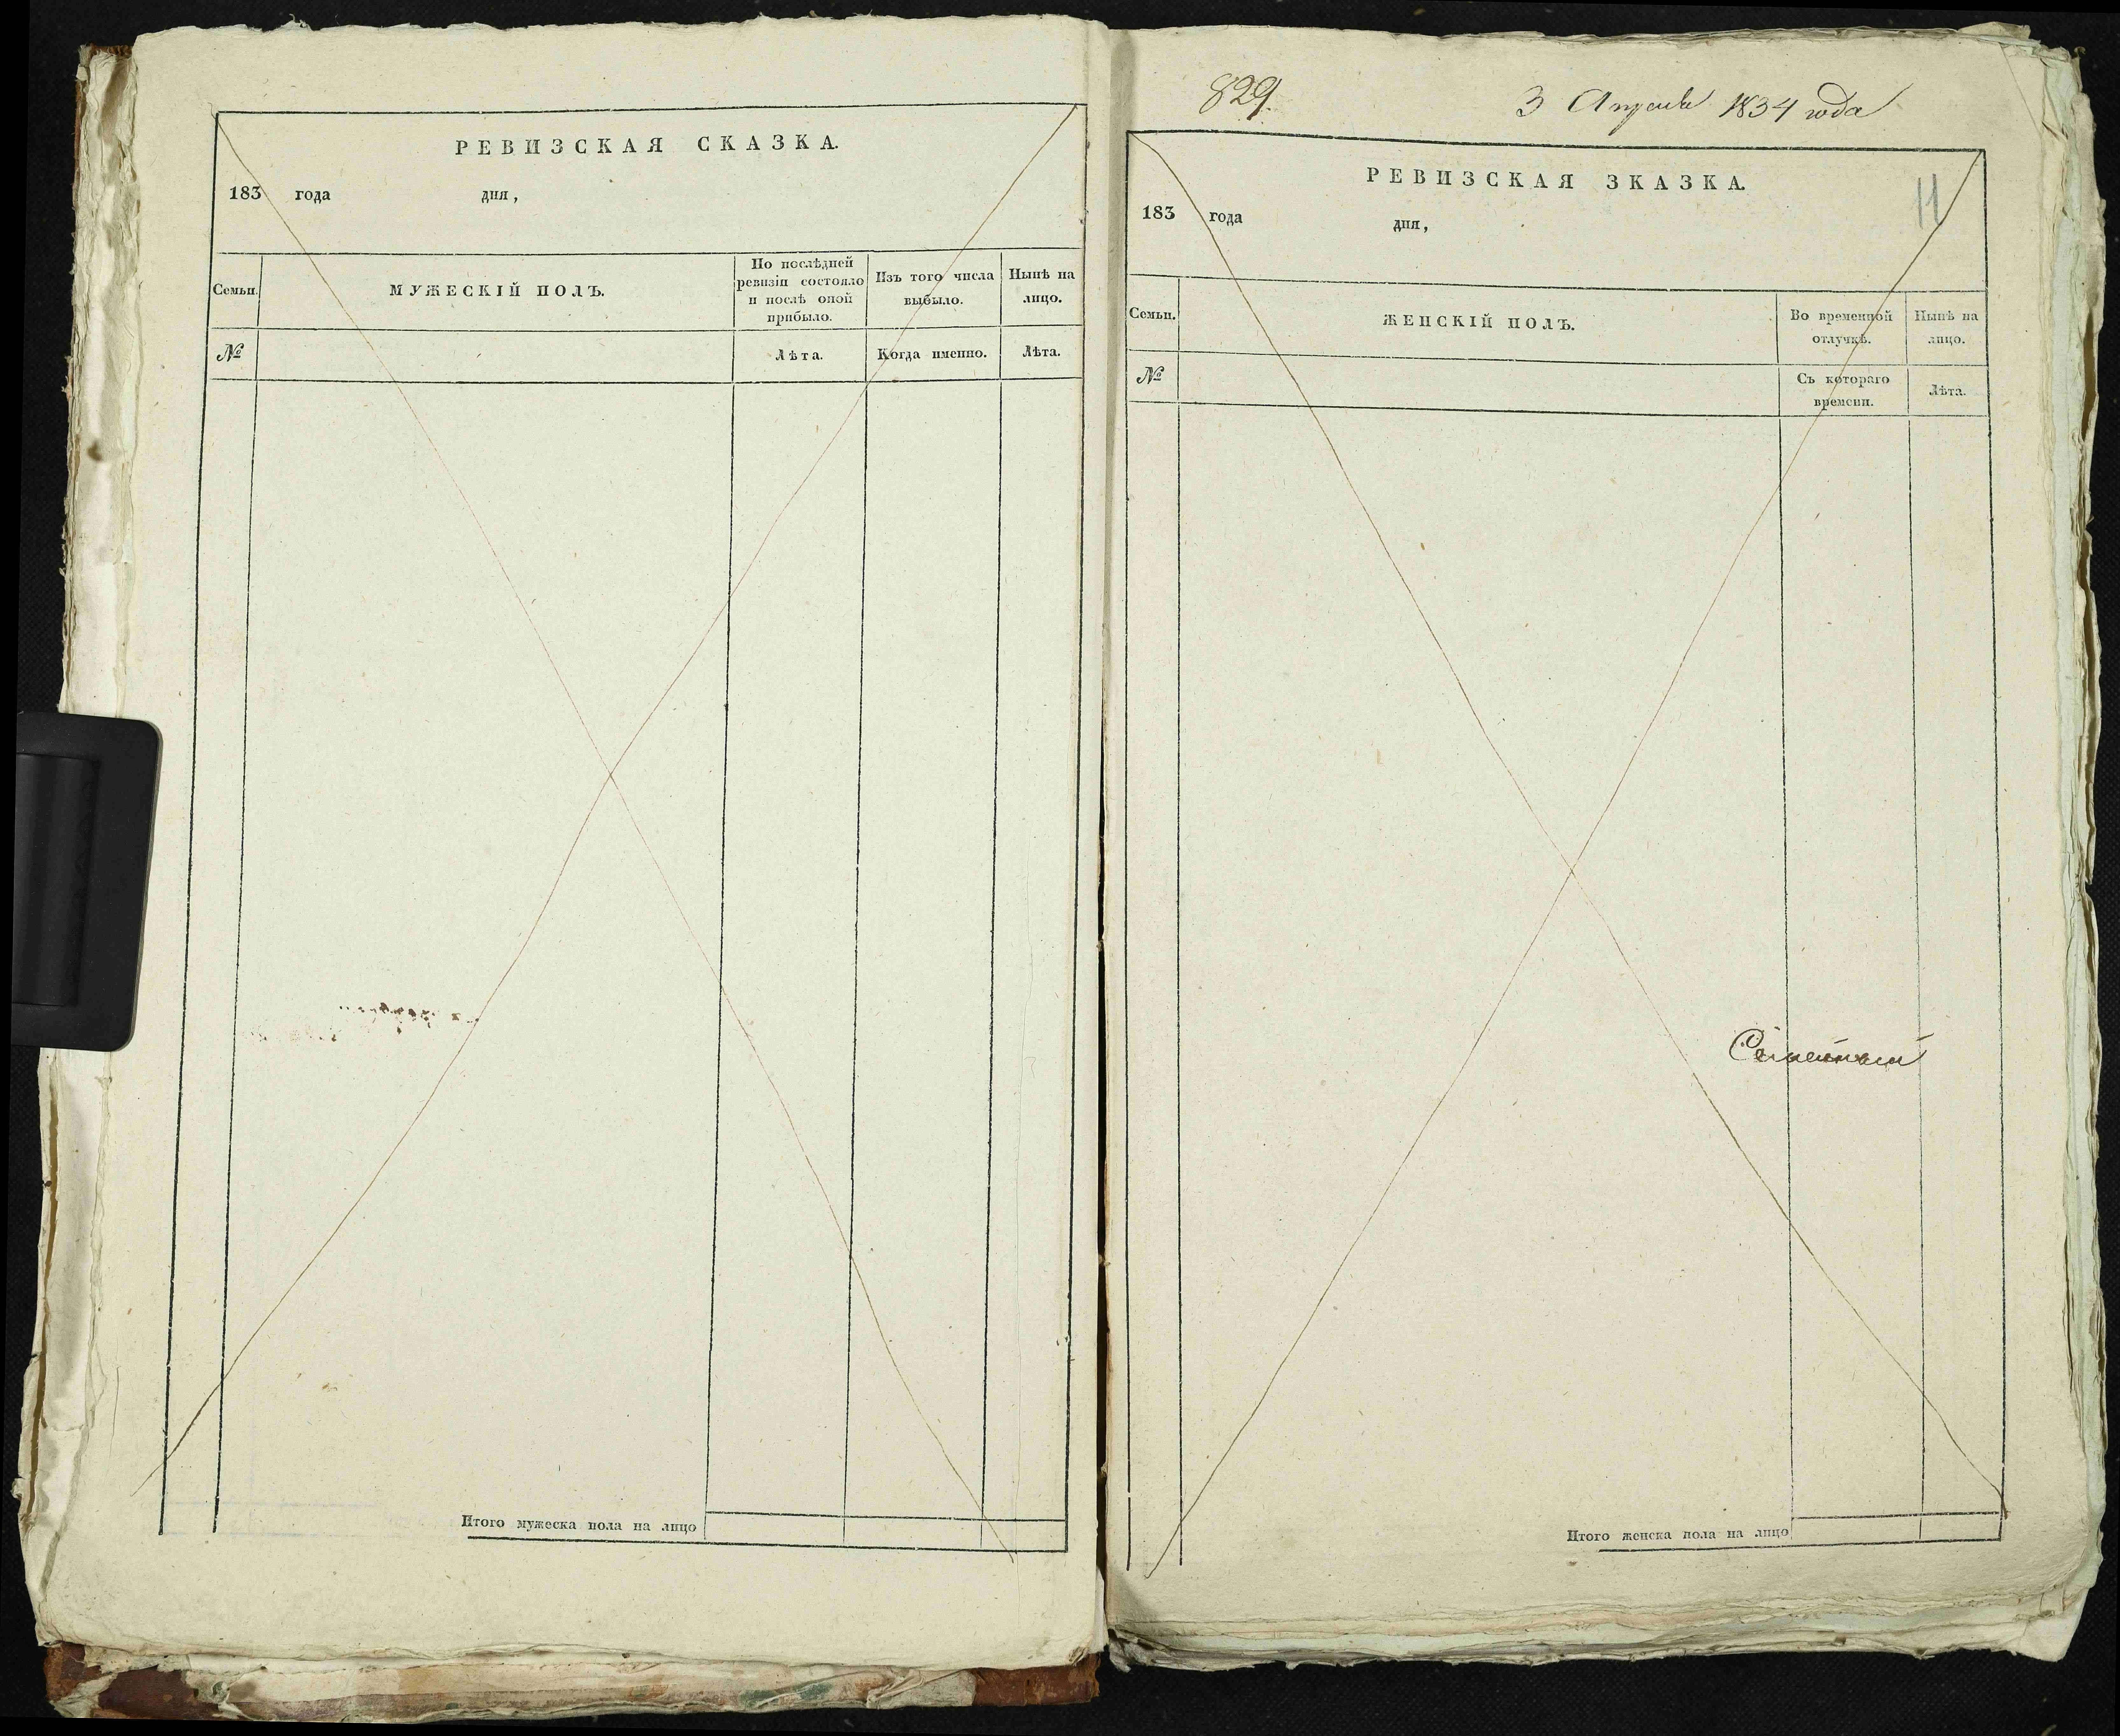 РЕВИЗСКАЯ СКАЗКА.
183 года дня,
Семьи.
МУЖЕСКІЙ ПОЛЪ.
По послѣдней
ревизіи состояло
и послѣ оной
прибыло.
Изъ того числа
выбыло.
Нынѣ на
лицо.
№
Лѣта.
Когда именно.
Лѣта.
Итого мужеска пола на лицо
829.
3 Апреля 1834 года
РЕВИЗСКАЯ ЗКАЗКА.
11
183 года дня,
Семьи.
ЖЕНСКІЙ ПОЛЪ.
Во временной
отлучкѣ.
Нынѣ на
лицо.
№
Съ котораго
времени.
Лѣта.
Итого женска пола на лицо